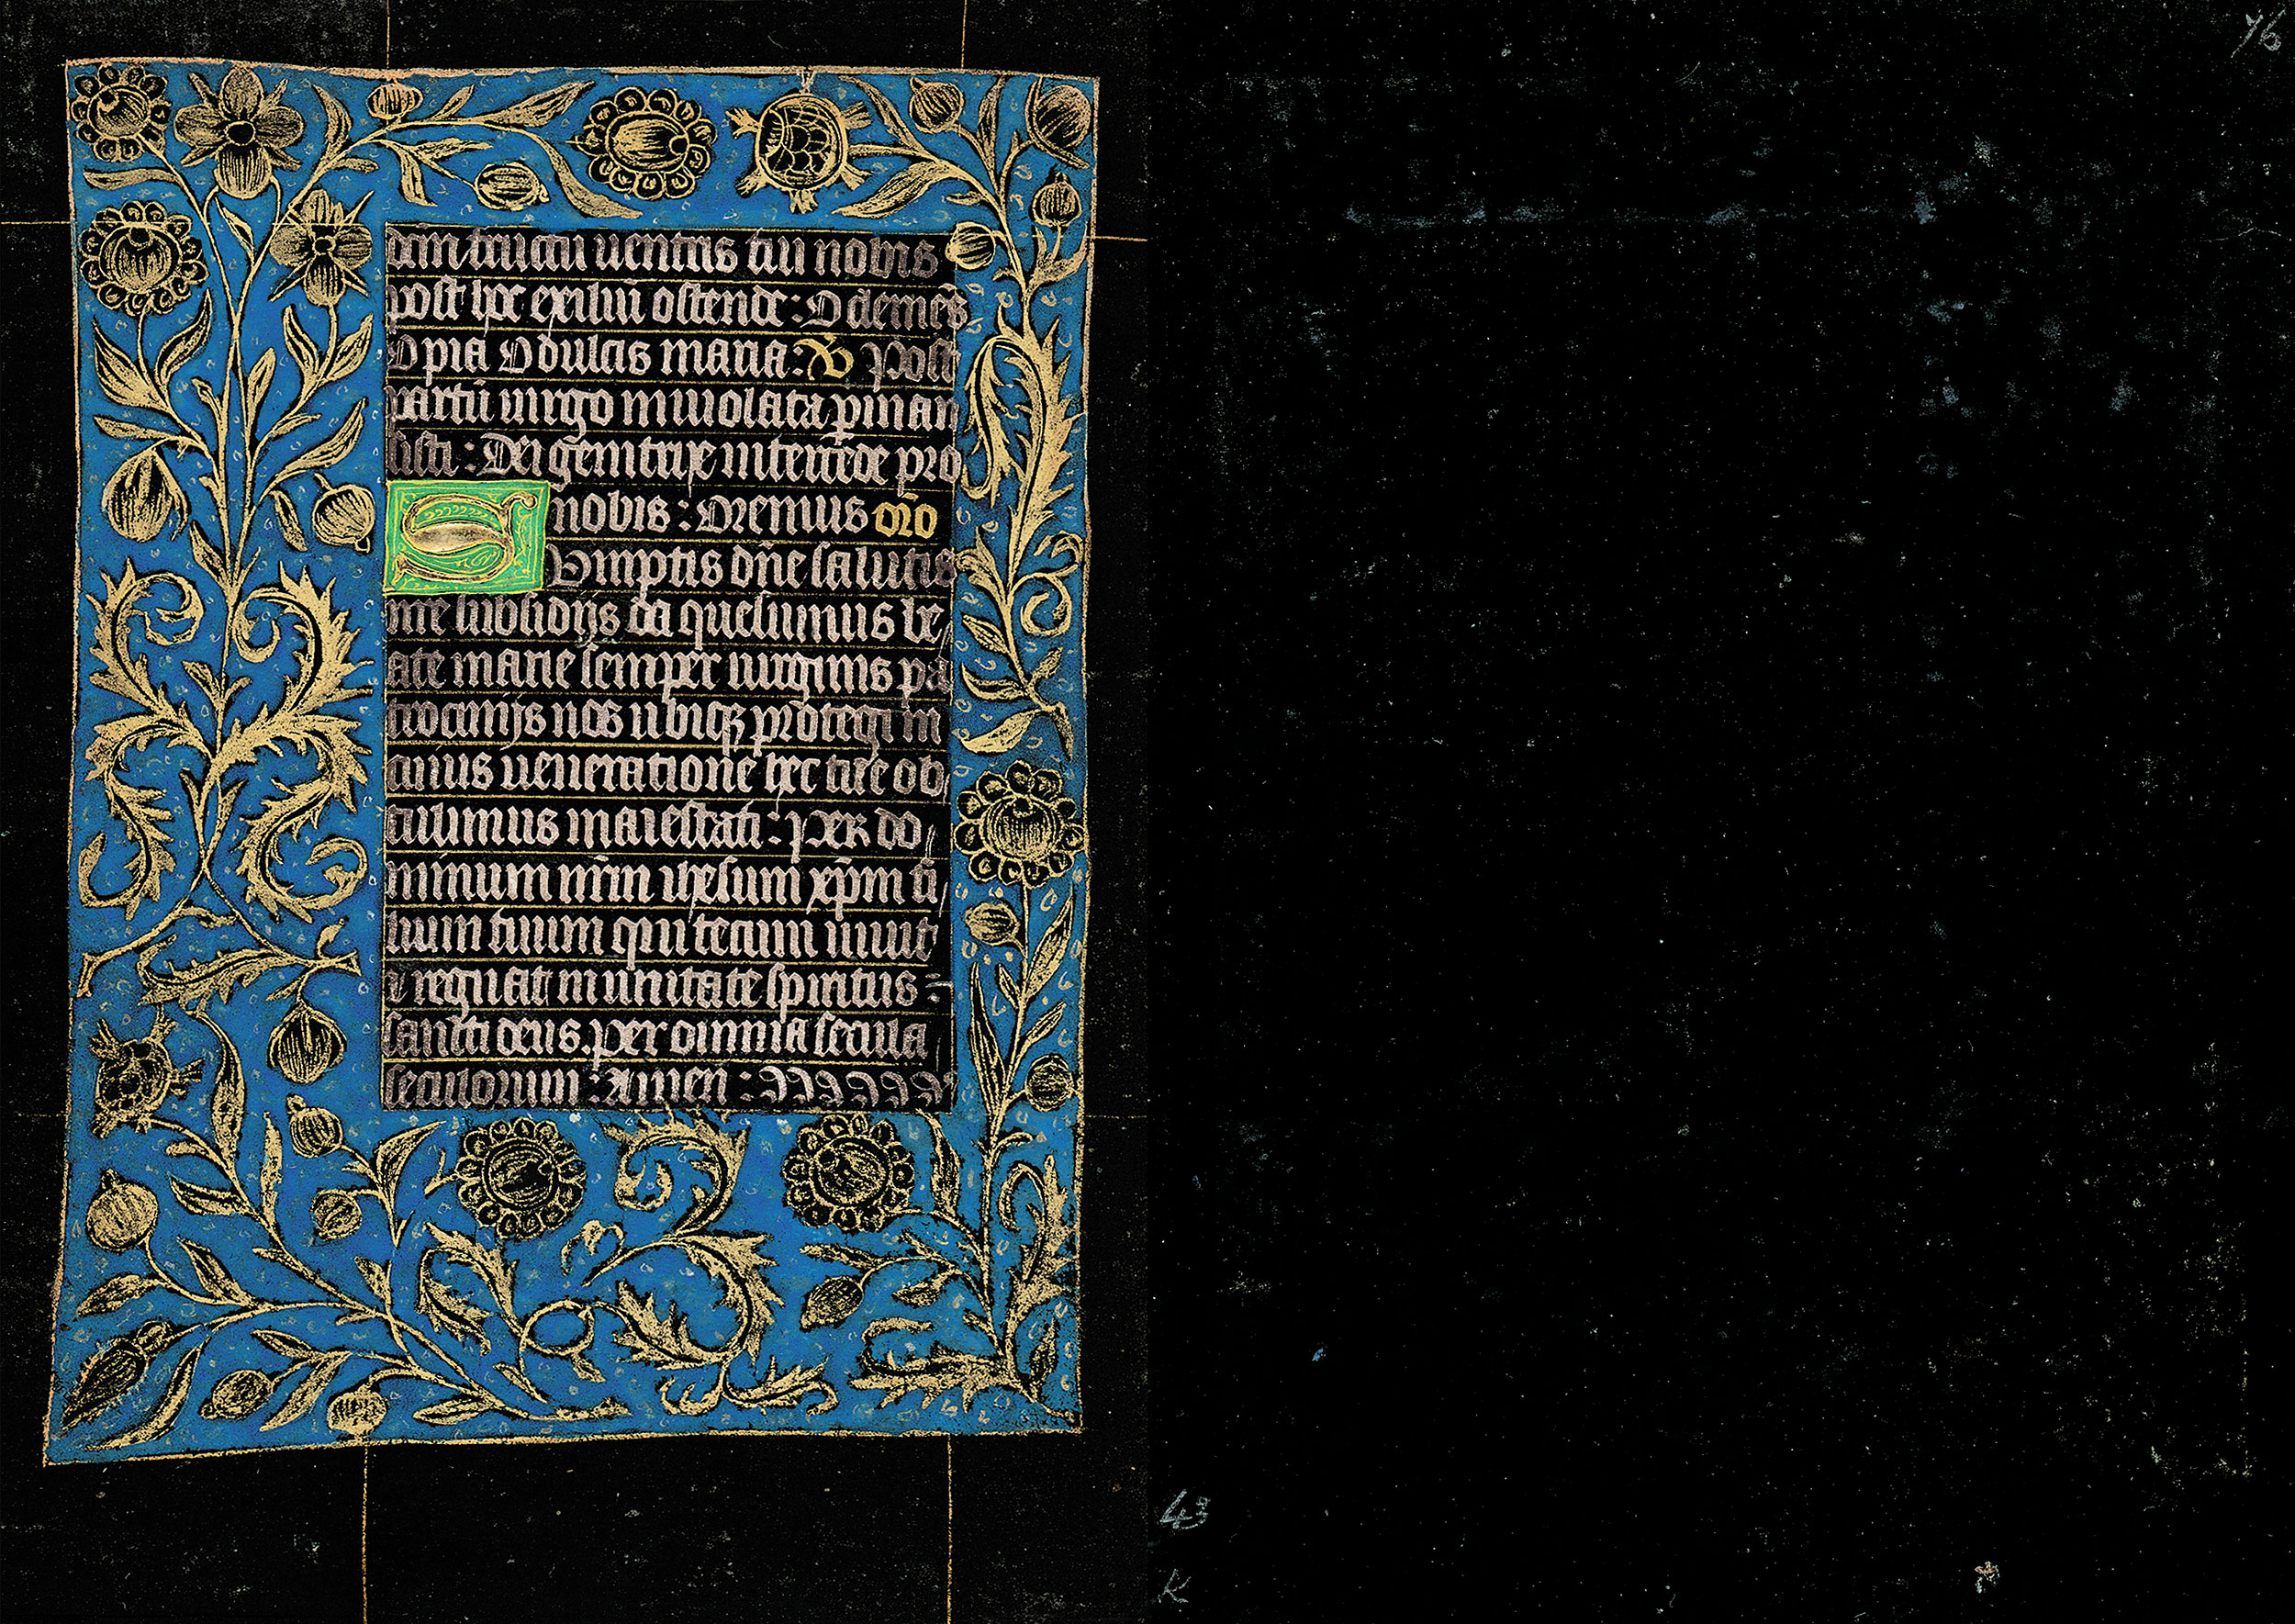 dictū fructū ventris tui nobis
post hoc exiliū ostende: O clemēs
O pia O dulcis maria: V Post
partū virgo inviolata pman
sisti: Dei genitrix intercede pro
nobis: Oremus orō
Sumptis dñe salutis
nre subsidijs da quesumus be,
ate marie semper virginis pa
trocinijs nos ubiqȝ protegi in
cuius veneratione hec tue ob
tulimus maiestati: Per do,,
minum nrm ihesum xpm fi,
lium tuum qui tecum vivit
& regnat in unitate spiritus
sancti deus. per omnia secula
seculorum: Amen:
76
43
K